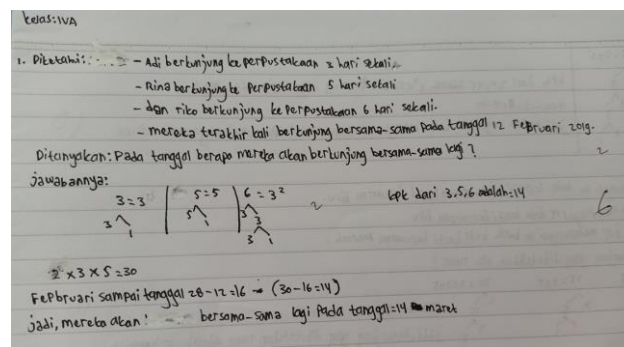 kelas: IVA
1. Diketahui: - Adi berkunjung ke perpustakaan 3 hari sekali.
- Rina berkunjung ke perpustakaan 5 hari sekali
- dan riko berkunjung ke perpustakaan 6 hari sekali.
- mereka terakhir kali berkunjung bersama-sama pada tanggal 12 Februari 2019.
Ditanyakan: Pada tanggal berapa mereka akan berkunjung bersama-sama lagi ?
2
jawabannya:
3 = 3 5 = 5 6 = 3² kpk dari 3,5,6 adalah = 14
3 1 5 1 3 3 2 6
3 1
2 x 3 x 5 = 30
Fepbruari sampai tanggal 28 - 12 = 16 → (30 - 16 = 14)
jadi, mereka akan bersama-sama lagi pada tanggal = 14 maret